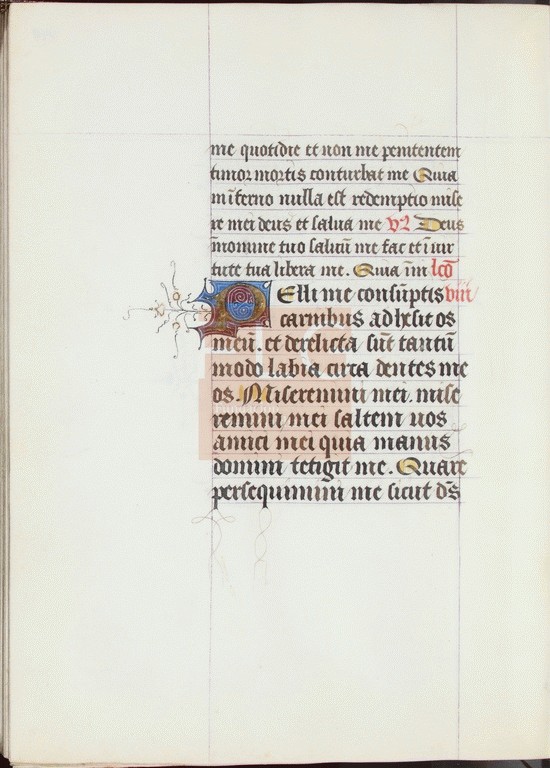 me quotidie et non me penitentem
timor mortis conturbat me Quia
in īferno nulla est redemptio mise
re mei deus et salua me v2 Deus
īnomine tuo saluū me fac et ī uir
tute tua libera me. Quia īin lcō
Pelli me consūptis viii
carnibus adhesit os
meū. et derelicta sūt tantū
modo labia circa dentes me
os. Miseremini mei. mise
remini mei saltem uos
amici mei quia manus
domini tetigit me. Quare
persequimini me sicut dūs